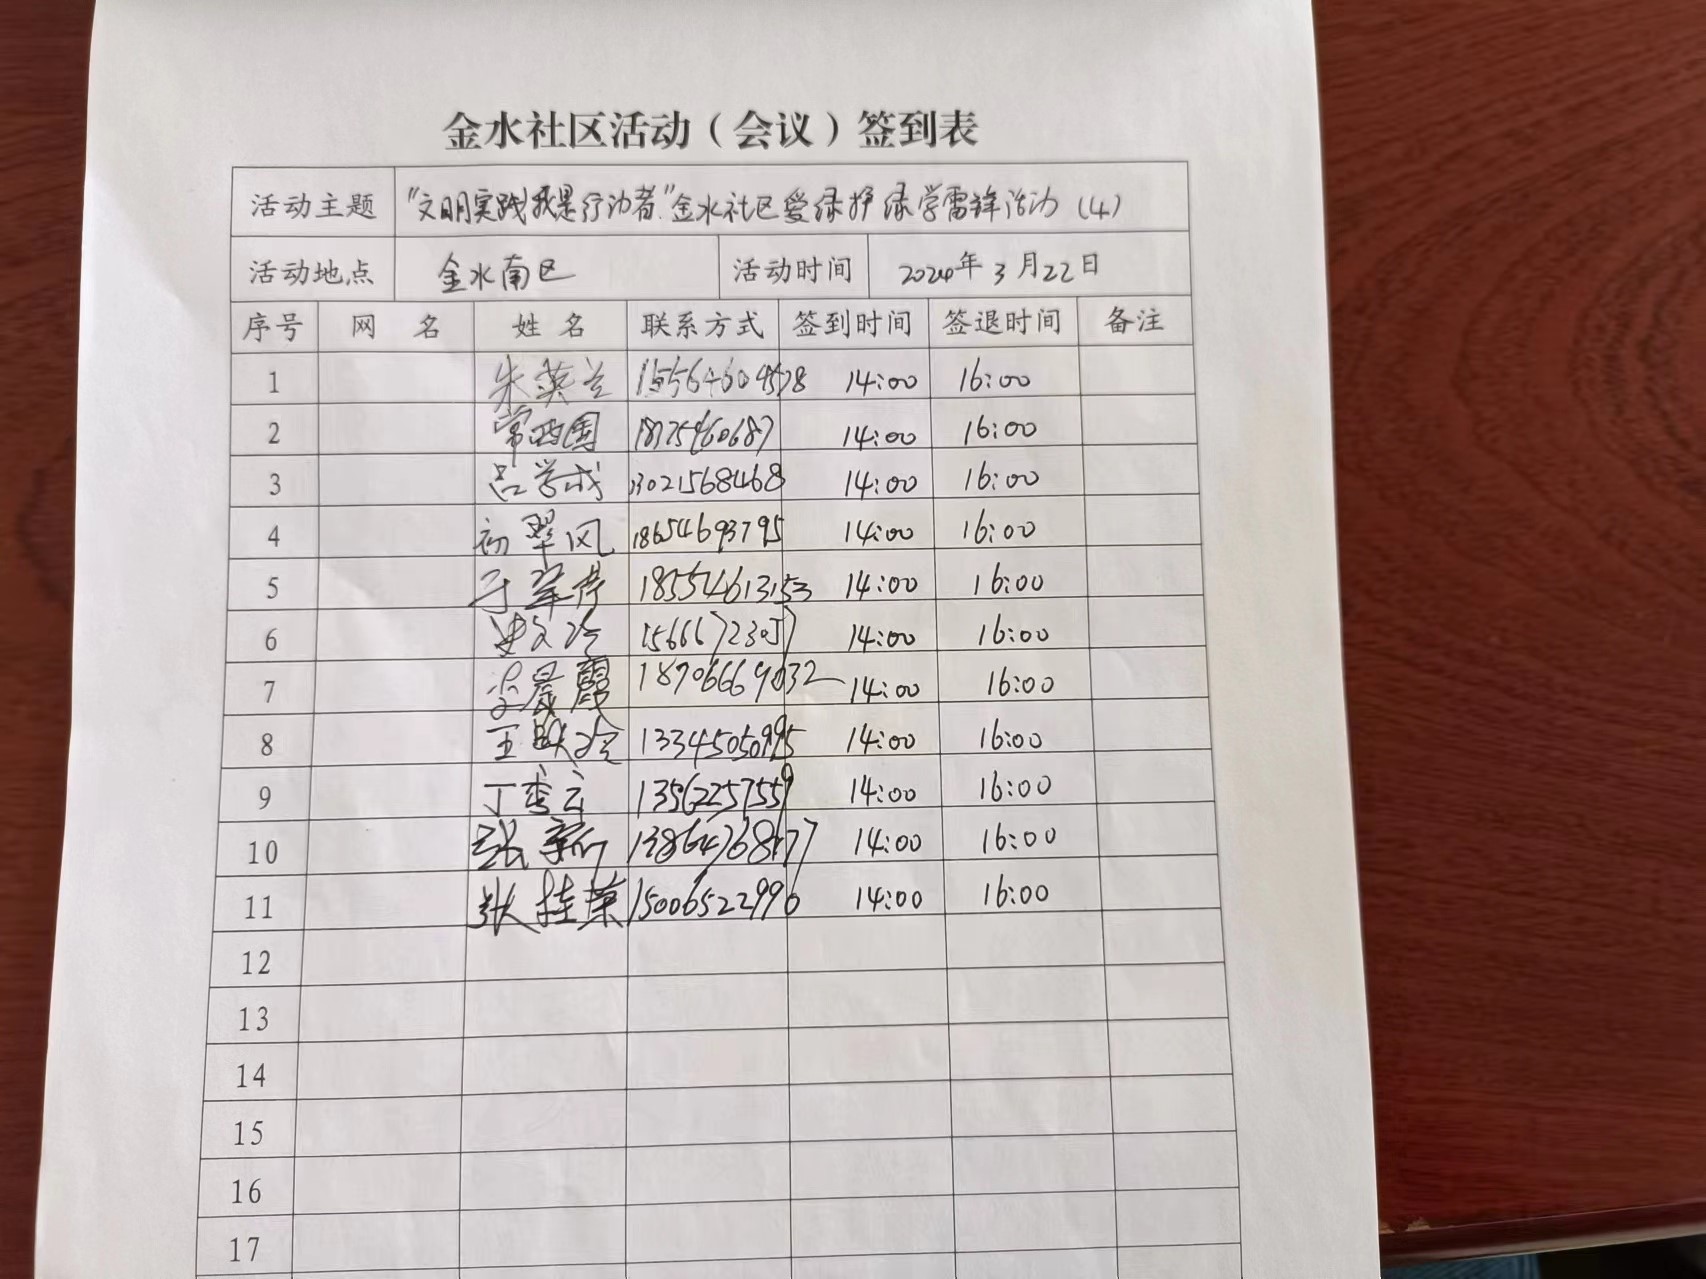 金水社区活动（会议）签到表
活动主题 "文明实践我是行动者"金水社区爱绿护绿学雷锋活动（4）
活动地点 金水南区 活动时间 2024年3月22日
序号 网 名 姓 名 联系方式 签到时间 签退时间 备注
1 朱英兰 14:00 16:00
2 14:00 16:00
3 吕学成 13021568468 14:00 16:00
4 初翠风 18654693795 14:00 16:00
5 18554613153 14:00 16:00
6 15666723057 14:00 16:00
7 晨霞 18706669032 14:00 16:00
8 13345050995 14:00 16:00
9 丁秀云 13562257559 14:00 16:00
10 张新 14:00 16:00
11 张桂英 15006522996 14:00 16:00
12
13
14
15
16
17